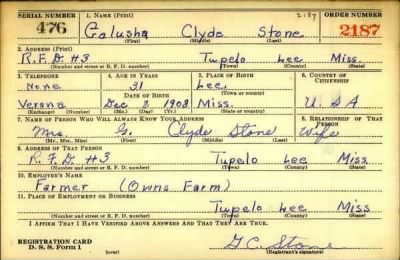 SERIAL NUMBER 1. NAME (Print) 2187 ORDER NUMBER
476 Galusha Clyde Stone 2187
(First) (Middle) (Last)
2. ADDRESS (Print)
R.F.D. #3 Tupelo Lee Miss.
(Number and street or R. F. D. number) (Town) (County) (State)
3. TELEPHONE 4. AGE IN YEARS 5. PLACE OF BIRTH 6. COUNTRY OF CITIZENSHIP
None 31 Lee,
DATE OF BIRTH (Town or county)
Verona Dec 2 1908 Miss. U.S.A
(Exchange) (Number) (Mo.) (Day) (Yr.) (State or country)
7. NAME OF PERSON WHO WILL ALWAYS KNOW YOUR ADDRESS 8. RELATIONSHIP OF THAT PERSON
Mrs. G. Clyde Stone Wife
(Mr., Mrs., Miss) (First) (Middle) (Last)
9. ADDRESS OF THAT PERSON
R.F.D. #3 Tupelo Lee Miss.
(Number and street or R. F. D. number) (Town) (County) (State)
10. EMPLOYER'S NAME
Farmer (Owns Farm)
11. PLACE OF EMPLOYMENT OR BUSINESS
Tupelo Lee Miss
(Number and street or R. F. D. number) (Town) (County) (State)
I AFFIRM THAT I HAVE VERIFIED ABOVE ANSWERS AND THAT THEY ARE TRUE.
REGISTRATION CARD
D. S. S. Form 1 (over) G.C. Stone
(Registrant's signature)